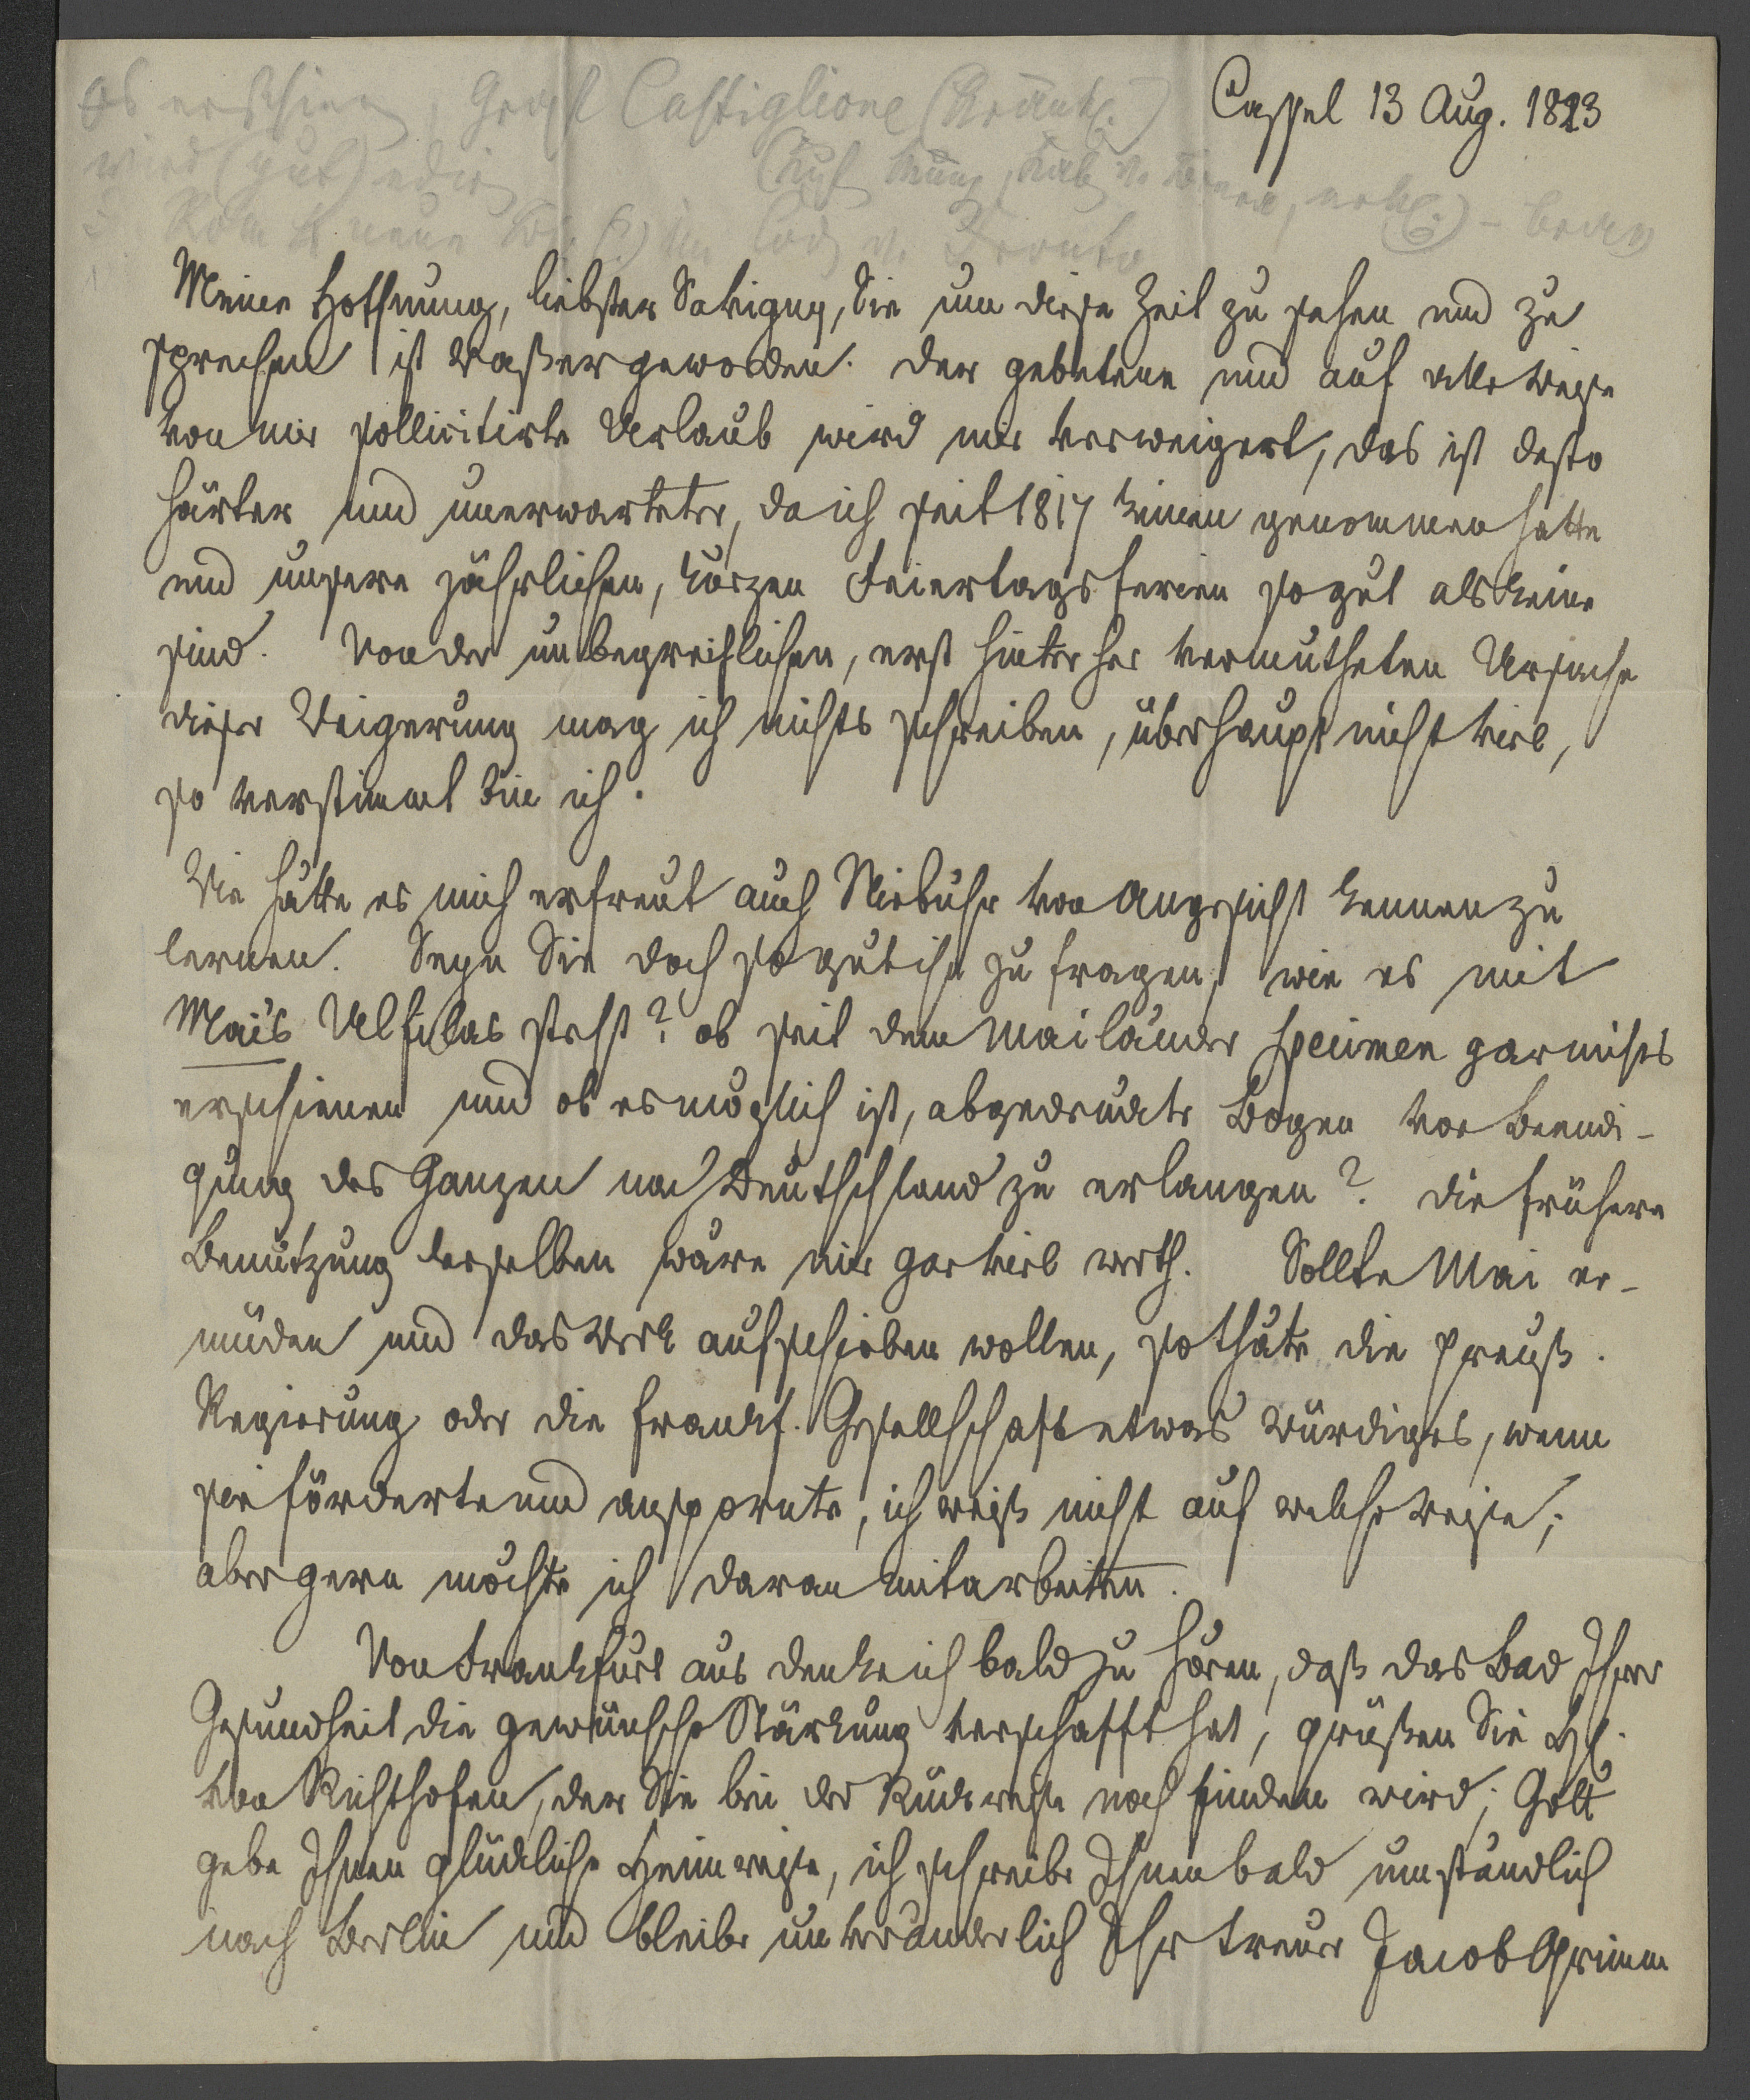 Cassel 13 Aug. 1823
es erschien, Graf Castiglione
wird (gut) edir
Rom neue Cod. v. Fronto
Meine Hoffnung, liebster Savigny, Sie um diese Zeit zu sehen und zu
sprechen ist Waßer geworden. der gebetene und auf alle Weise
von mir sollicitirte Urlaub wird mir verweigert, das ist desto
härter und unerwarteter, da ich seit 1817 keinen genommen hatte
und unsere jährlichen, kurzen Feiertagsferien so gut als keine
sind. Von der unbegreiflichen, erst hinterher vermutheten Ursache
dieser Weigerung mag ich nichts schreiben, überhaupt nicht viel,
so verstimmt bin ich.
Wie hätte es mich erfreut auch Niebuhr von Angesicht kennen zu
lernen. Seyn Sie doch so gut ihn zu fragen, wie es mit
Mai's Ulfilas steht? ob seit dem Mailänder specimen gar nichts
erschienen und ob es möglich ist, abgedruckte Bogen vor Beendi-
gung des Ganzen nach Deutschland zu erlangen? die frühere
Benutzung derselben wäre mir gar viel werth. Sollte Mai er-
müden und das Werk aufschieben wollen, so thäte die preuß.
Regierung oder die frankf. Gesellschaft etwas würdiges, wenn
sie förderte und anspornte, ich weiß nicht auf welche Weise;
aber gern möchte ich daran mitarbeiten.
Von Frankfurt aus denke ich bald zu hören, daß das Bad Ihrer
Gesundheit die gewünschte Stärkung verschafft hat, grüßen Sie H.
von Richthofen, der Sie bei der Rückreise noch finden wird; Gott
gebe Ihnen glückliche Heimreise, ich schreibe Ihnen bald umständlich
nach Berlin und bleibe unveränderlich Ihr treuer Jacob Grimm